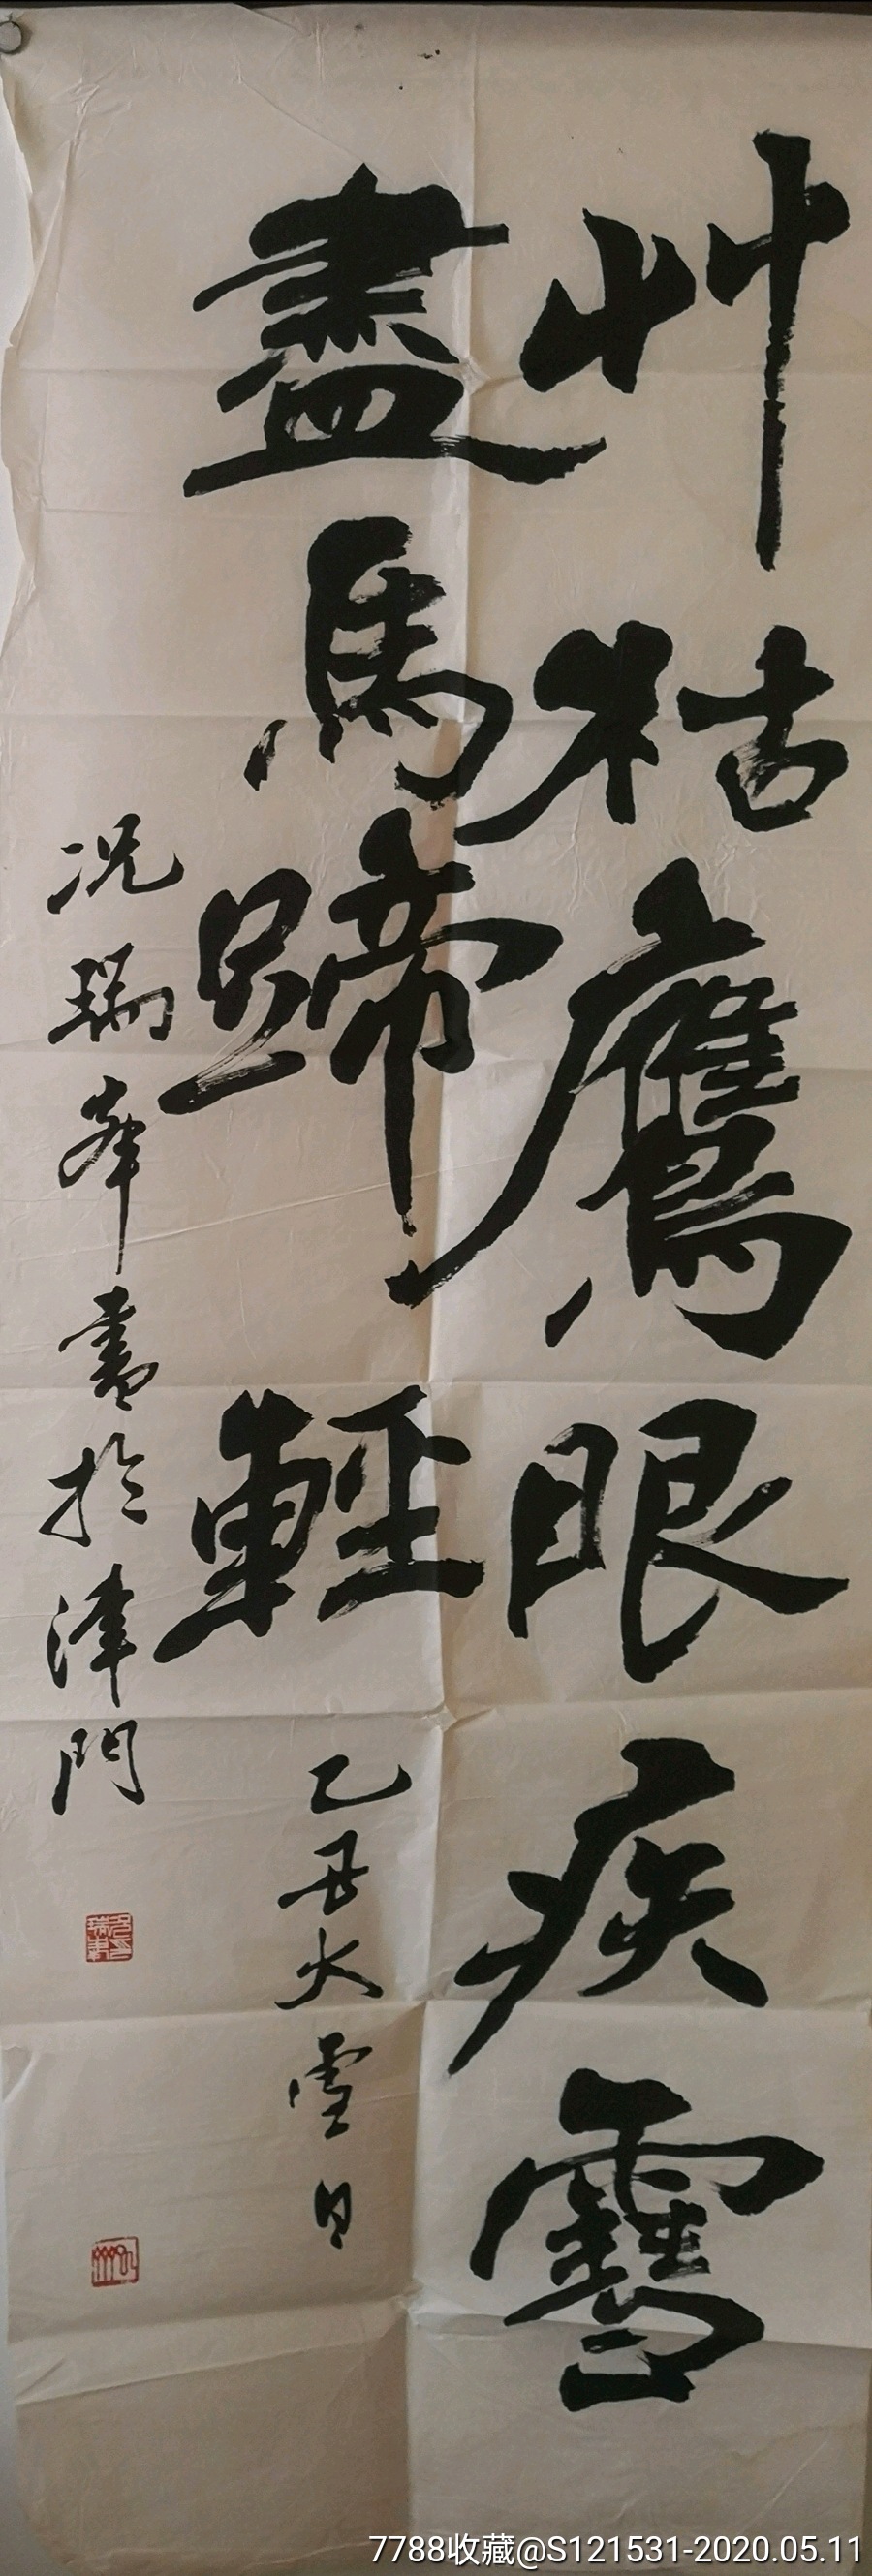 艸枯鹰眼疾雪
盡馬蹄輕
乙丑大雪日
况瑞峯書於津門
7788收藏@S121531-2020.05.11